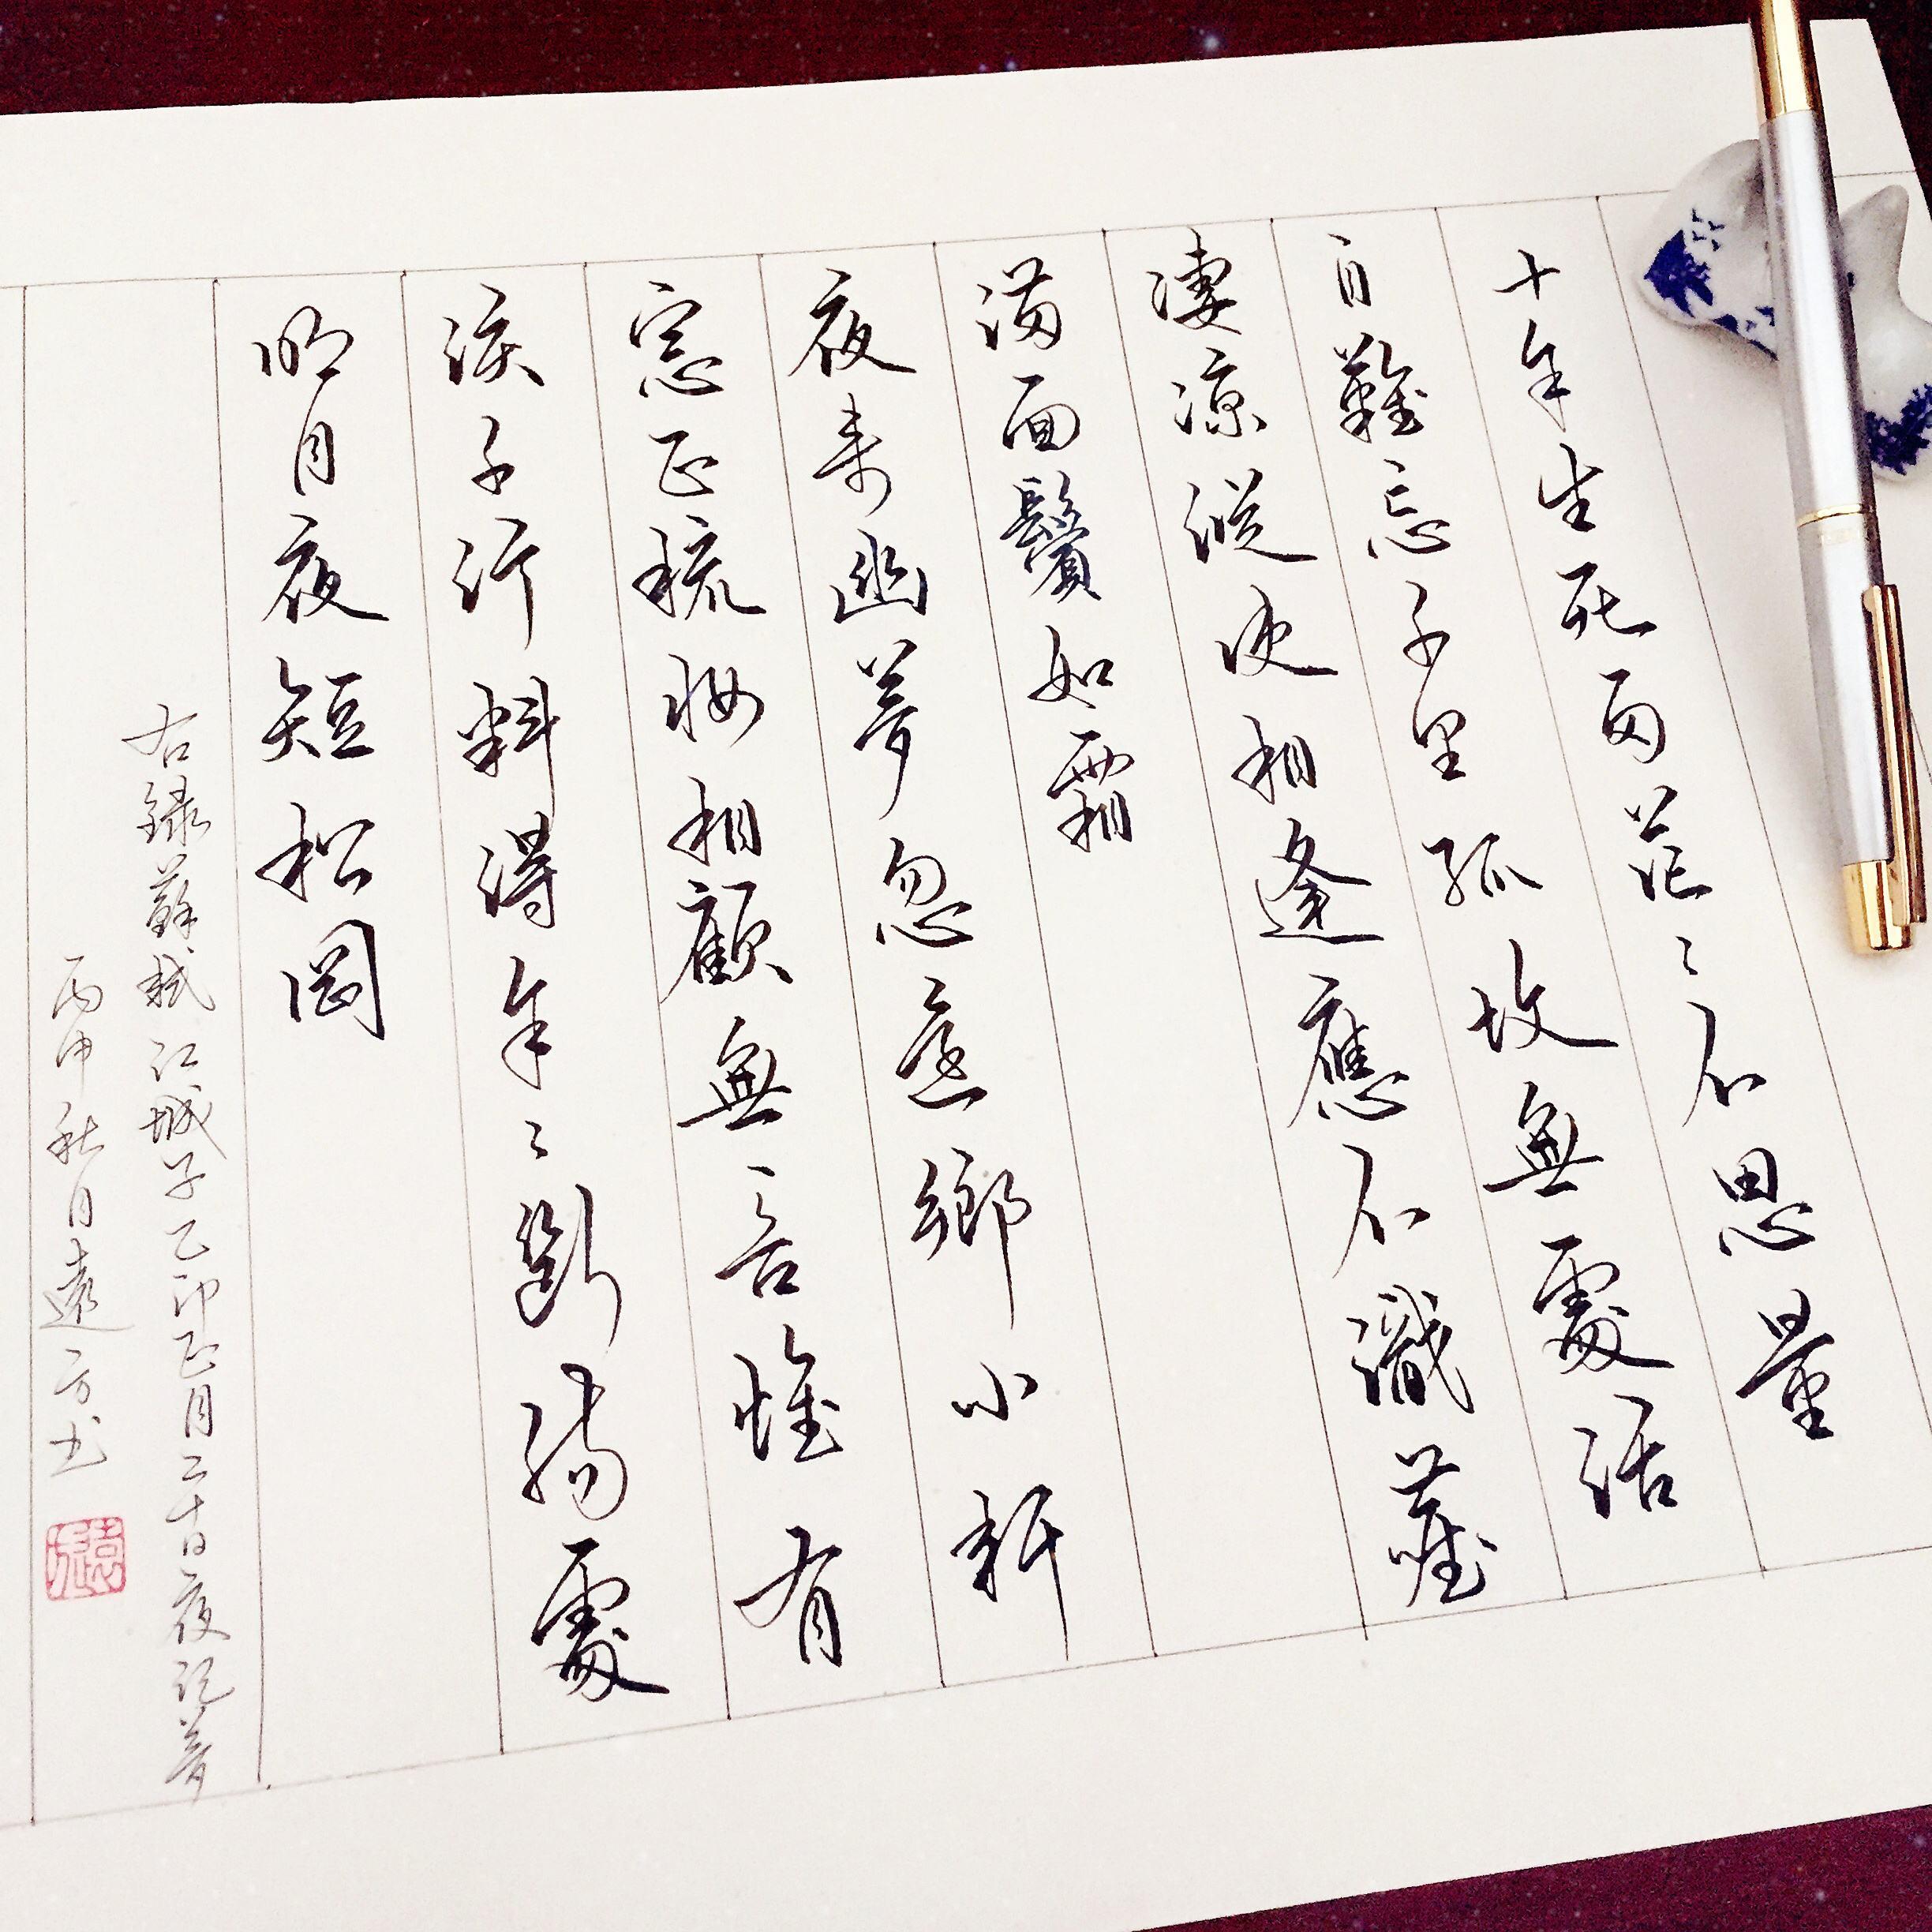 十年生死兩茫々不思量
自難忘千里孤墳無處話
淒涼縱使相逢應不識塵
滿面鬢如霜
夜來幽夢忽還鄉小軒
窓正梳妝相顧無言惟有
淚千行料得年々斷腸處
明月夜短松岡
右錄蘇軾江城子乙卯正月二十日夜記夢
丙申秋月遠方書